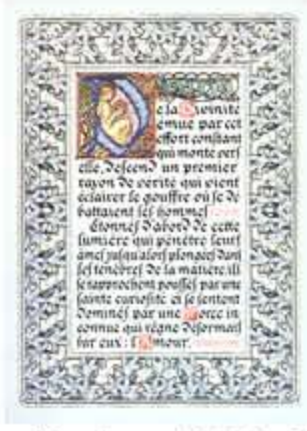 De la Divinité
émue par cet
effort constant
qui monte vers
elle, descend un premier
rayon de vérité qui vient
éclairer le gouffre où se dé
battaient les hommes
Étonnés d'abord de cette
lumière qui pénètre leurs
âmes jusqu'alors plongées dans
les ténèbres de la matière, ils
se rapprochent poussés par une
sainte curiosité et se sentent
dominés par une Force in
connue qui règne désormais
sur eux : l'Amour.